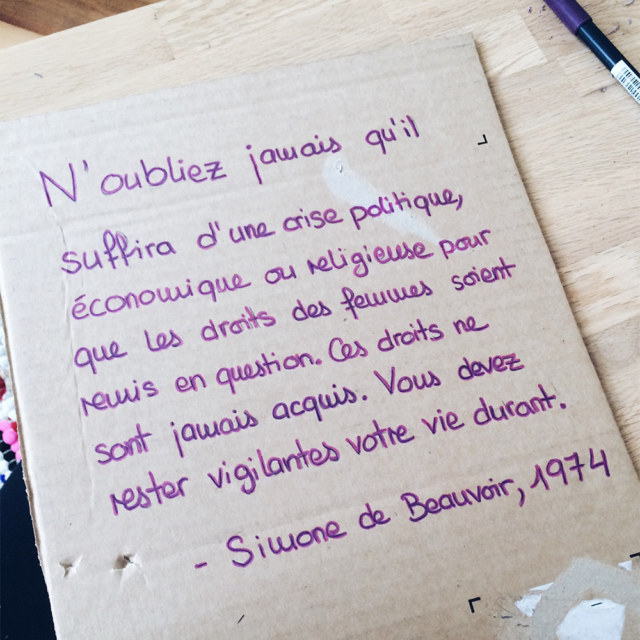 N'oubliez jamais qu'il
suffira d'une crise politique,
économique ou religieuse pour
que les droits des femmes soient
remis en question. Ces droits ne
sont jamais acquis. Vous devez
rester vigilantes votre vie durant.
- Simone de Beauvoir, 1974